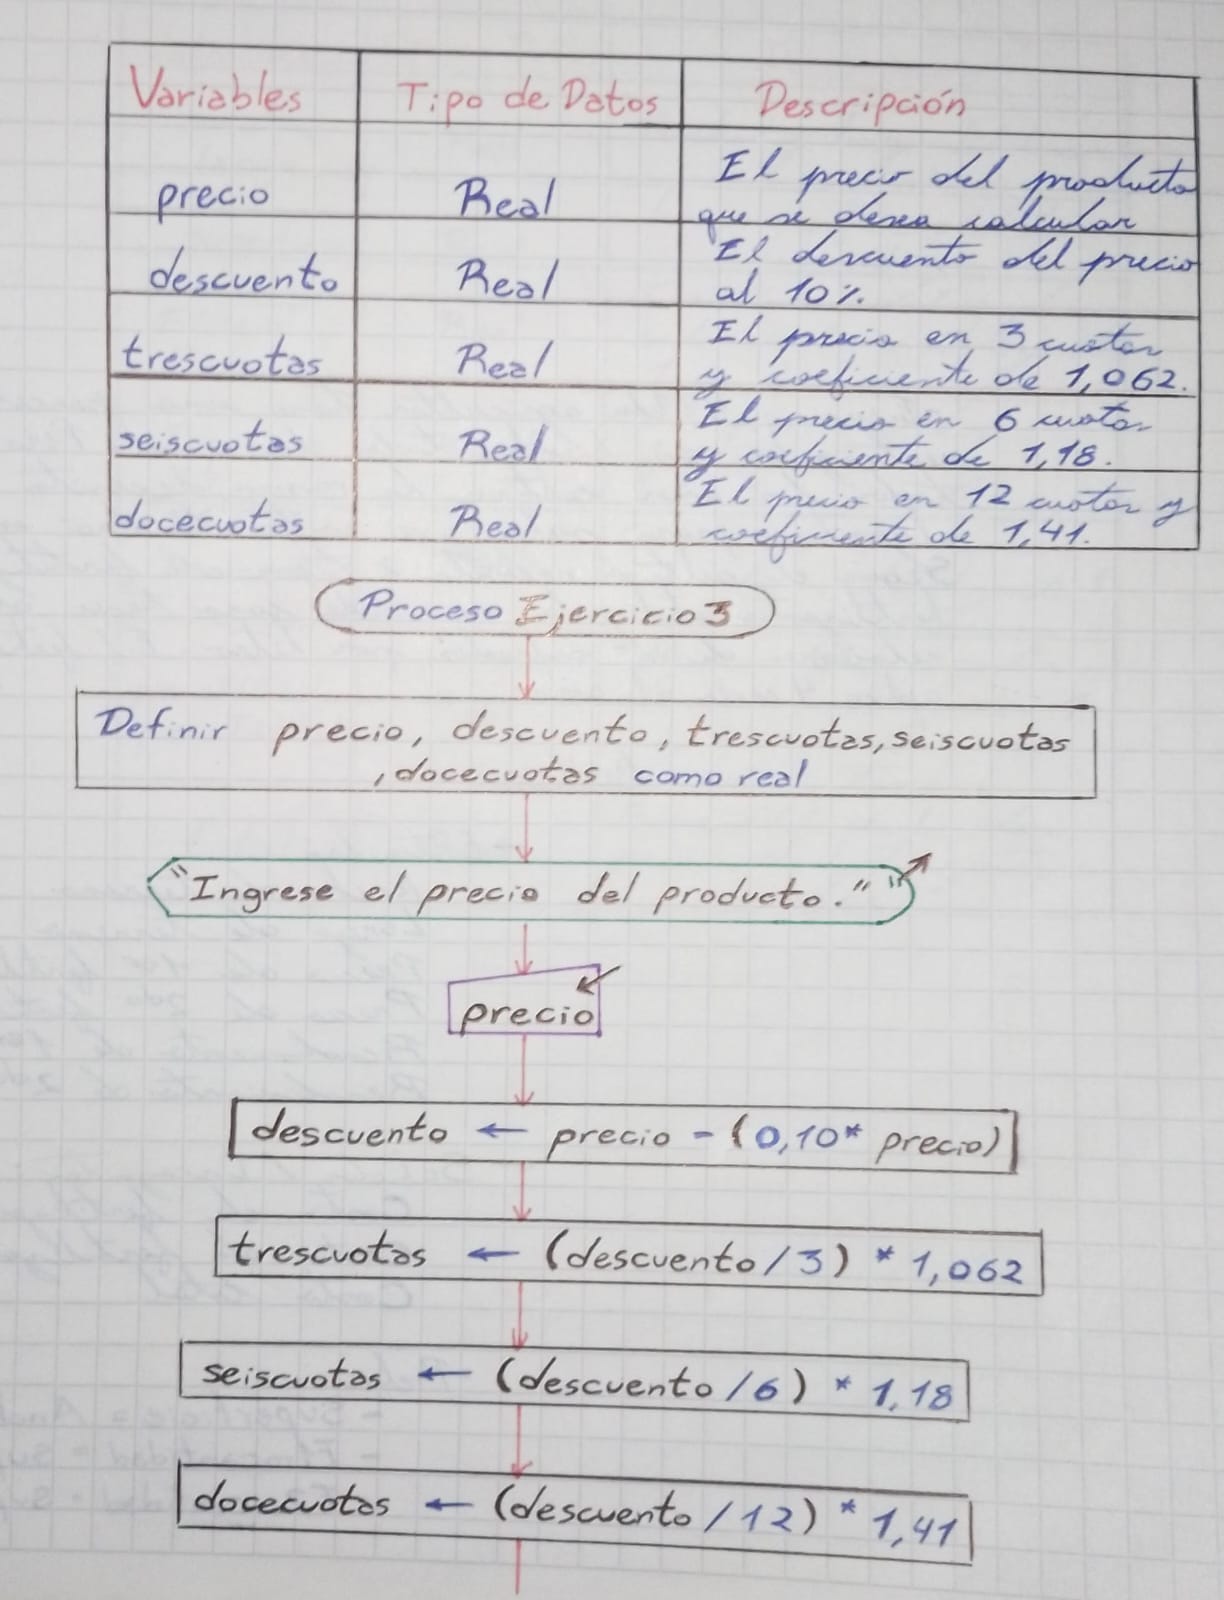 Variables Tipo de Datos Descripción
precio Real El precio del producto
que se desea calcular
descuento Real El descuento del precio
al 10%.
trescuotas Real El precio en 3 cuotas
y coeficiente de 1,062.
seiscuotas Real El precio en 6 cuotas
y coeficiente de 1,18.
docecuotas Real El precio en 12 cuotas y
coeficiente de 1,41.
Proceso Ejercicio3
Definir precio, descuento, trescuotas, seiscuotas
,docecuotas como real
"Ingrese el precio del producto." "
precio
descuento ← precio - (0,10* precio)
trescuotas ← (descuento/3) * 1,062
seiscuotas ← (descuento/6) * 1,18
docecuotas ← (descuento/12) * 1,41